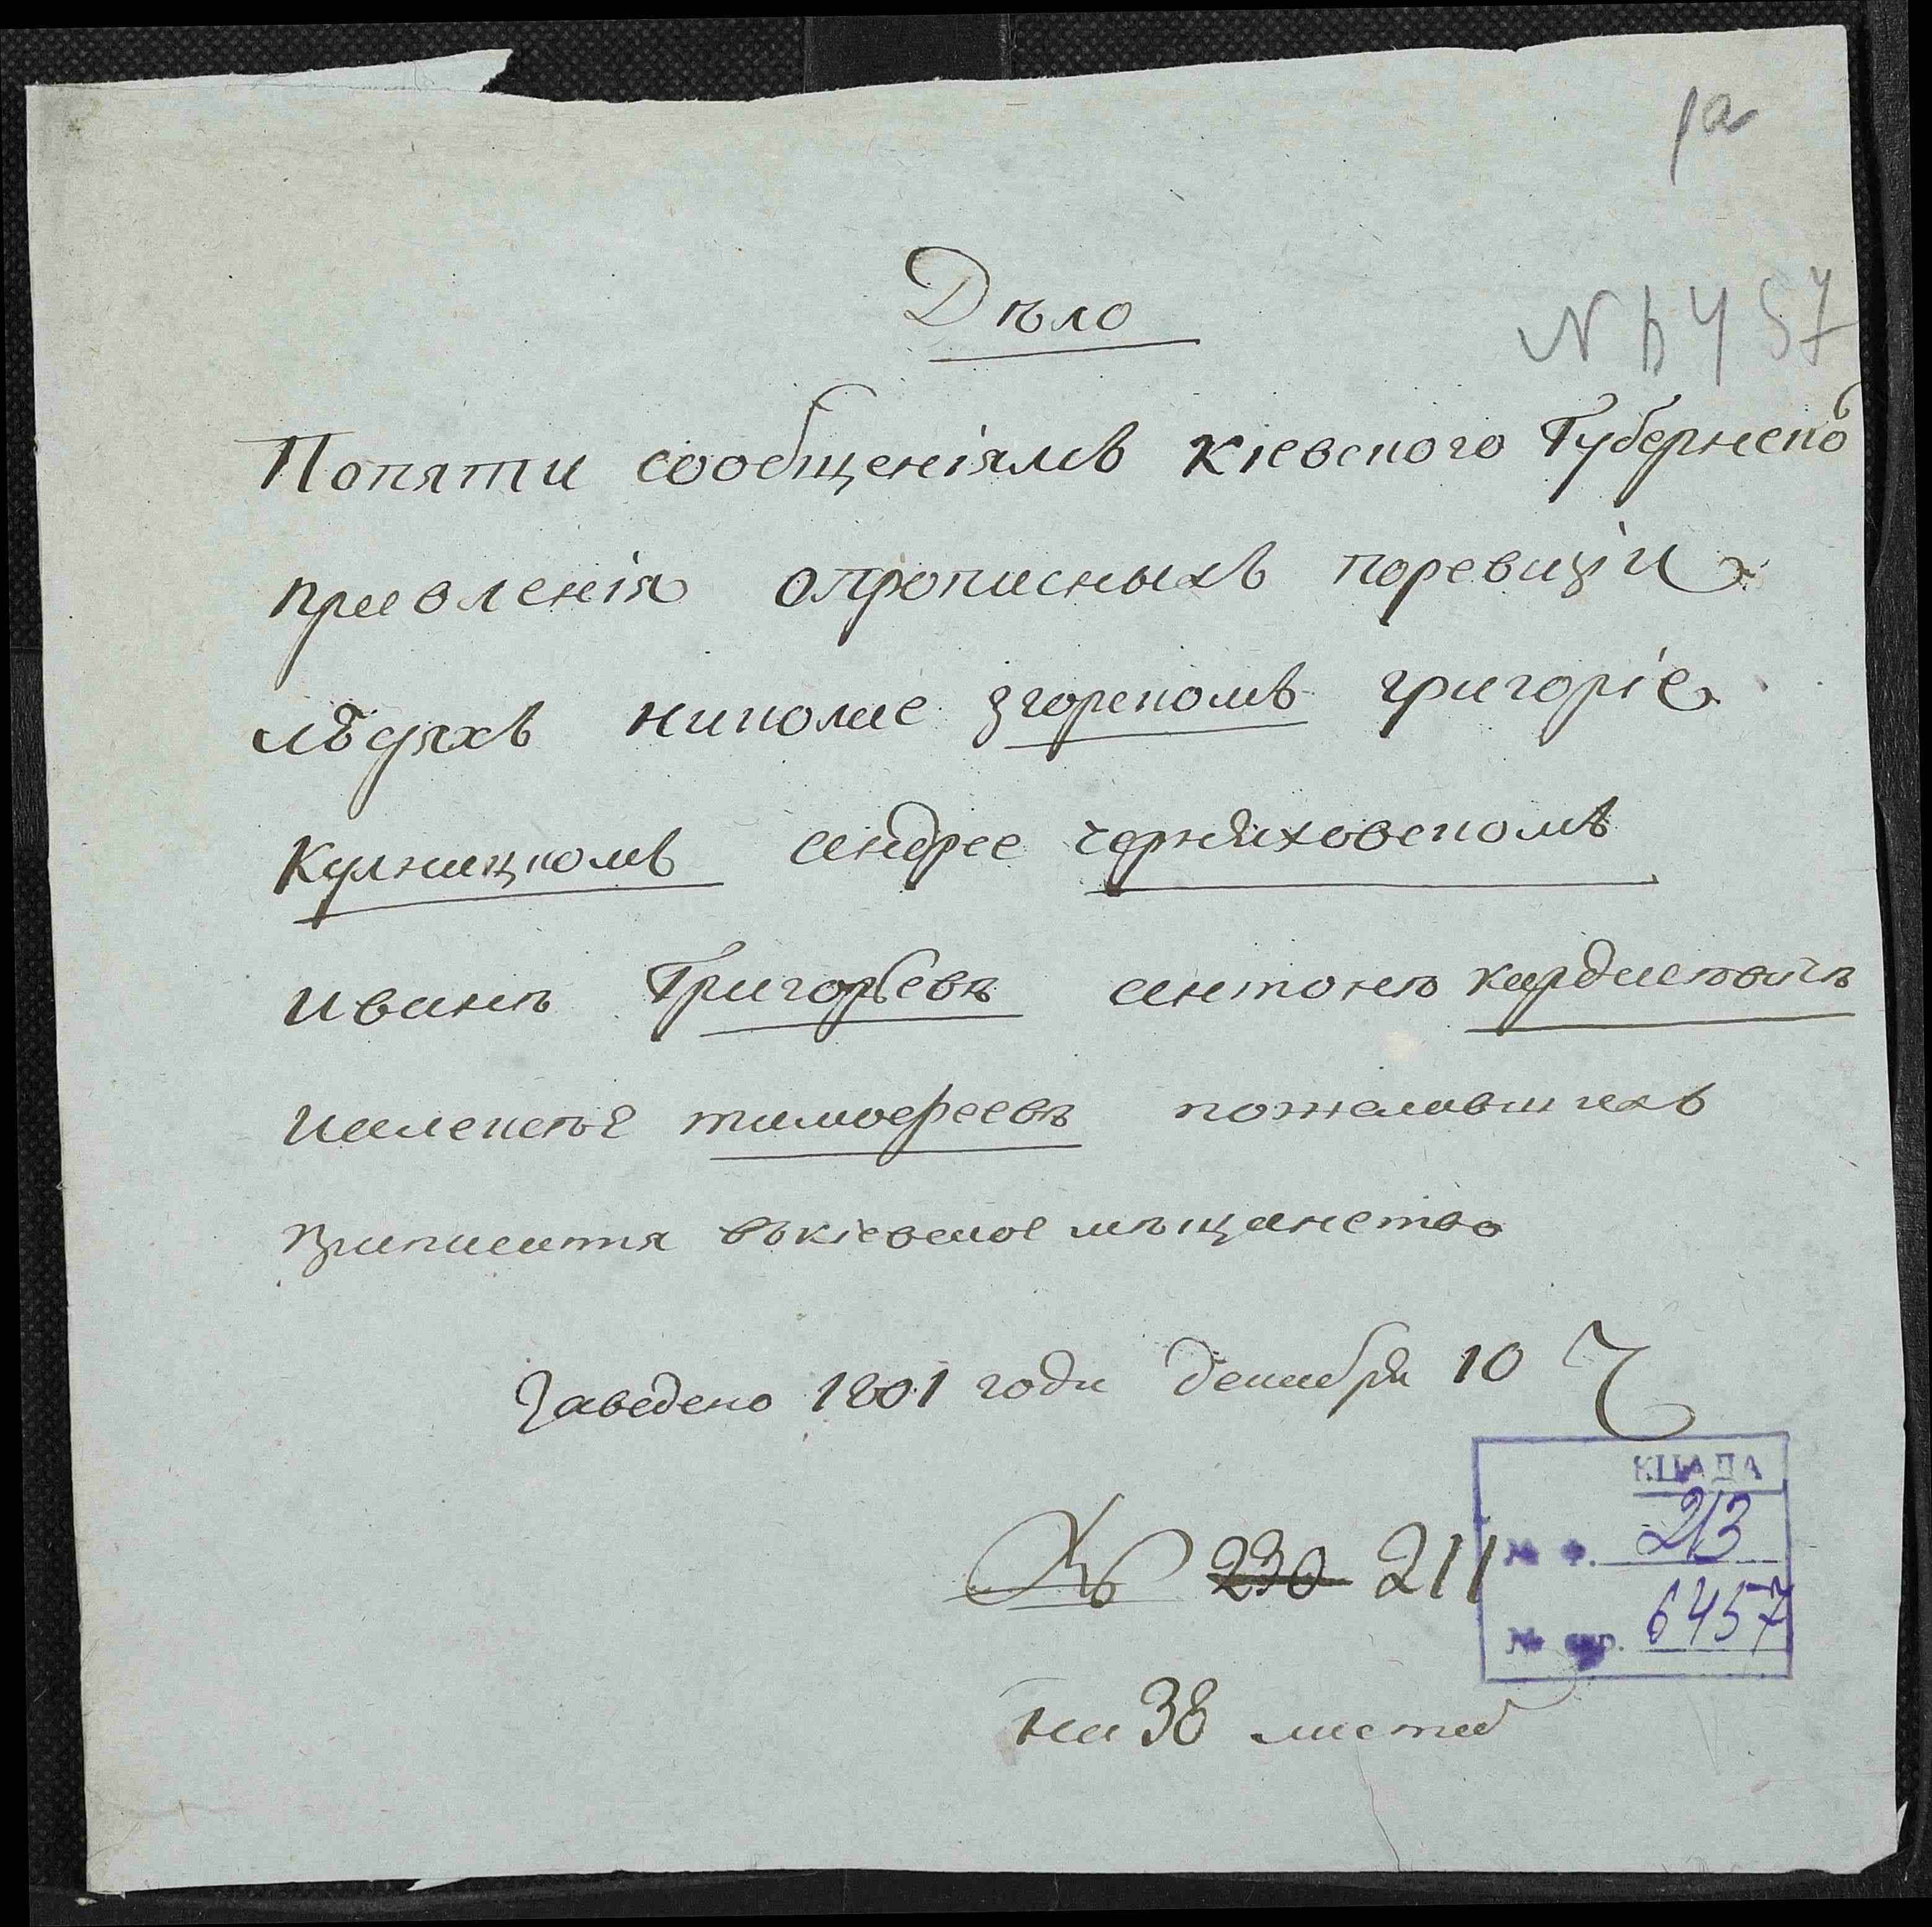 1а
Дѣло
N 6457
Попяти сообщеніямъ кіевского Губернско
правленія опрописныхъ поревизіи
людяхъ николае згорскомъ григоріе
Кулницкомъ андрее черняховскомъ
иванѣ Григорьевѣ антонѣ кардашевичѣ
иалексѣе тимофеевѣ пожелавшихъ
записатся вькіевское мѣщанство
Заведено 1801 года декабря 10
№ 230 211
КЦАДА
№ ф. 213
№ спр. 6457
на 38 листах